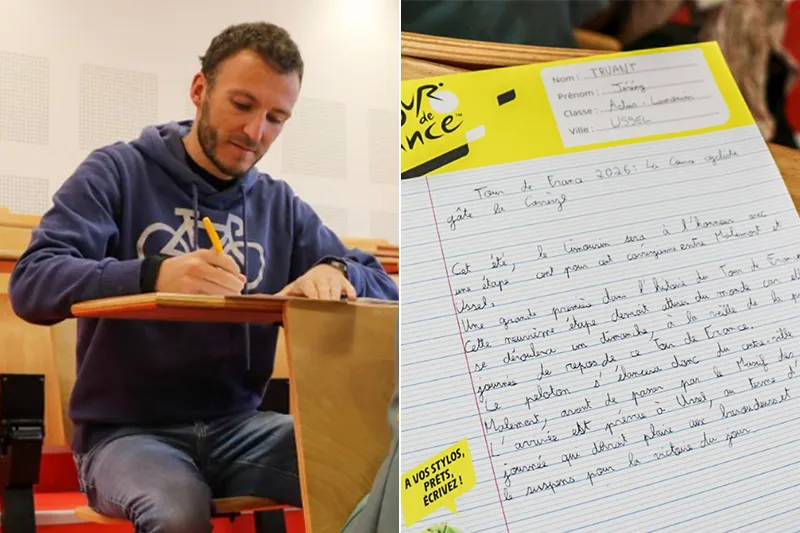 TOUR
de
FRANCE™
Nom: TRUANT
Prénom: Jérémy
Classe: Actus - Limousin
Ville: USSEL
Tour de France 2026: La Course cycliste
gâte la Corrèze
Cet été, le Limousin sera à l'honneur avec
une étape cent pour cent corrézienne entre Malemort et
Ussel.
Une grande première dans l'histoire du Tour de France.
Cette neuvième étape devrait attirer du monde car elle
se déroulera un dimanche, à la veille de la première
journée de repos de ce Tour de France.
Le peloton s'élancera donc du centre-ville
Malemort, avant de passer par le Massif des
L'arrivée est prévue à Ussel, au terme d'
journée qui devrait plaire aux baroudeurs et
le suspens pour la victoire du jour.
A VOS STYLOS,
PRÊTS,
ÉCRIVEZ !